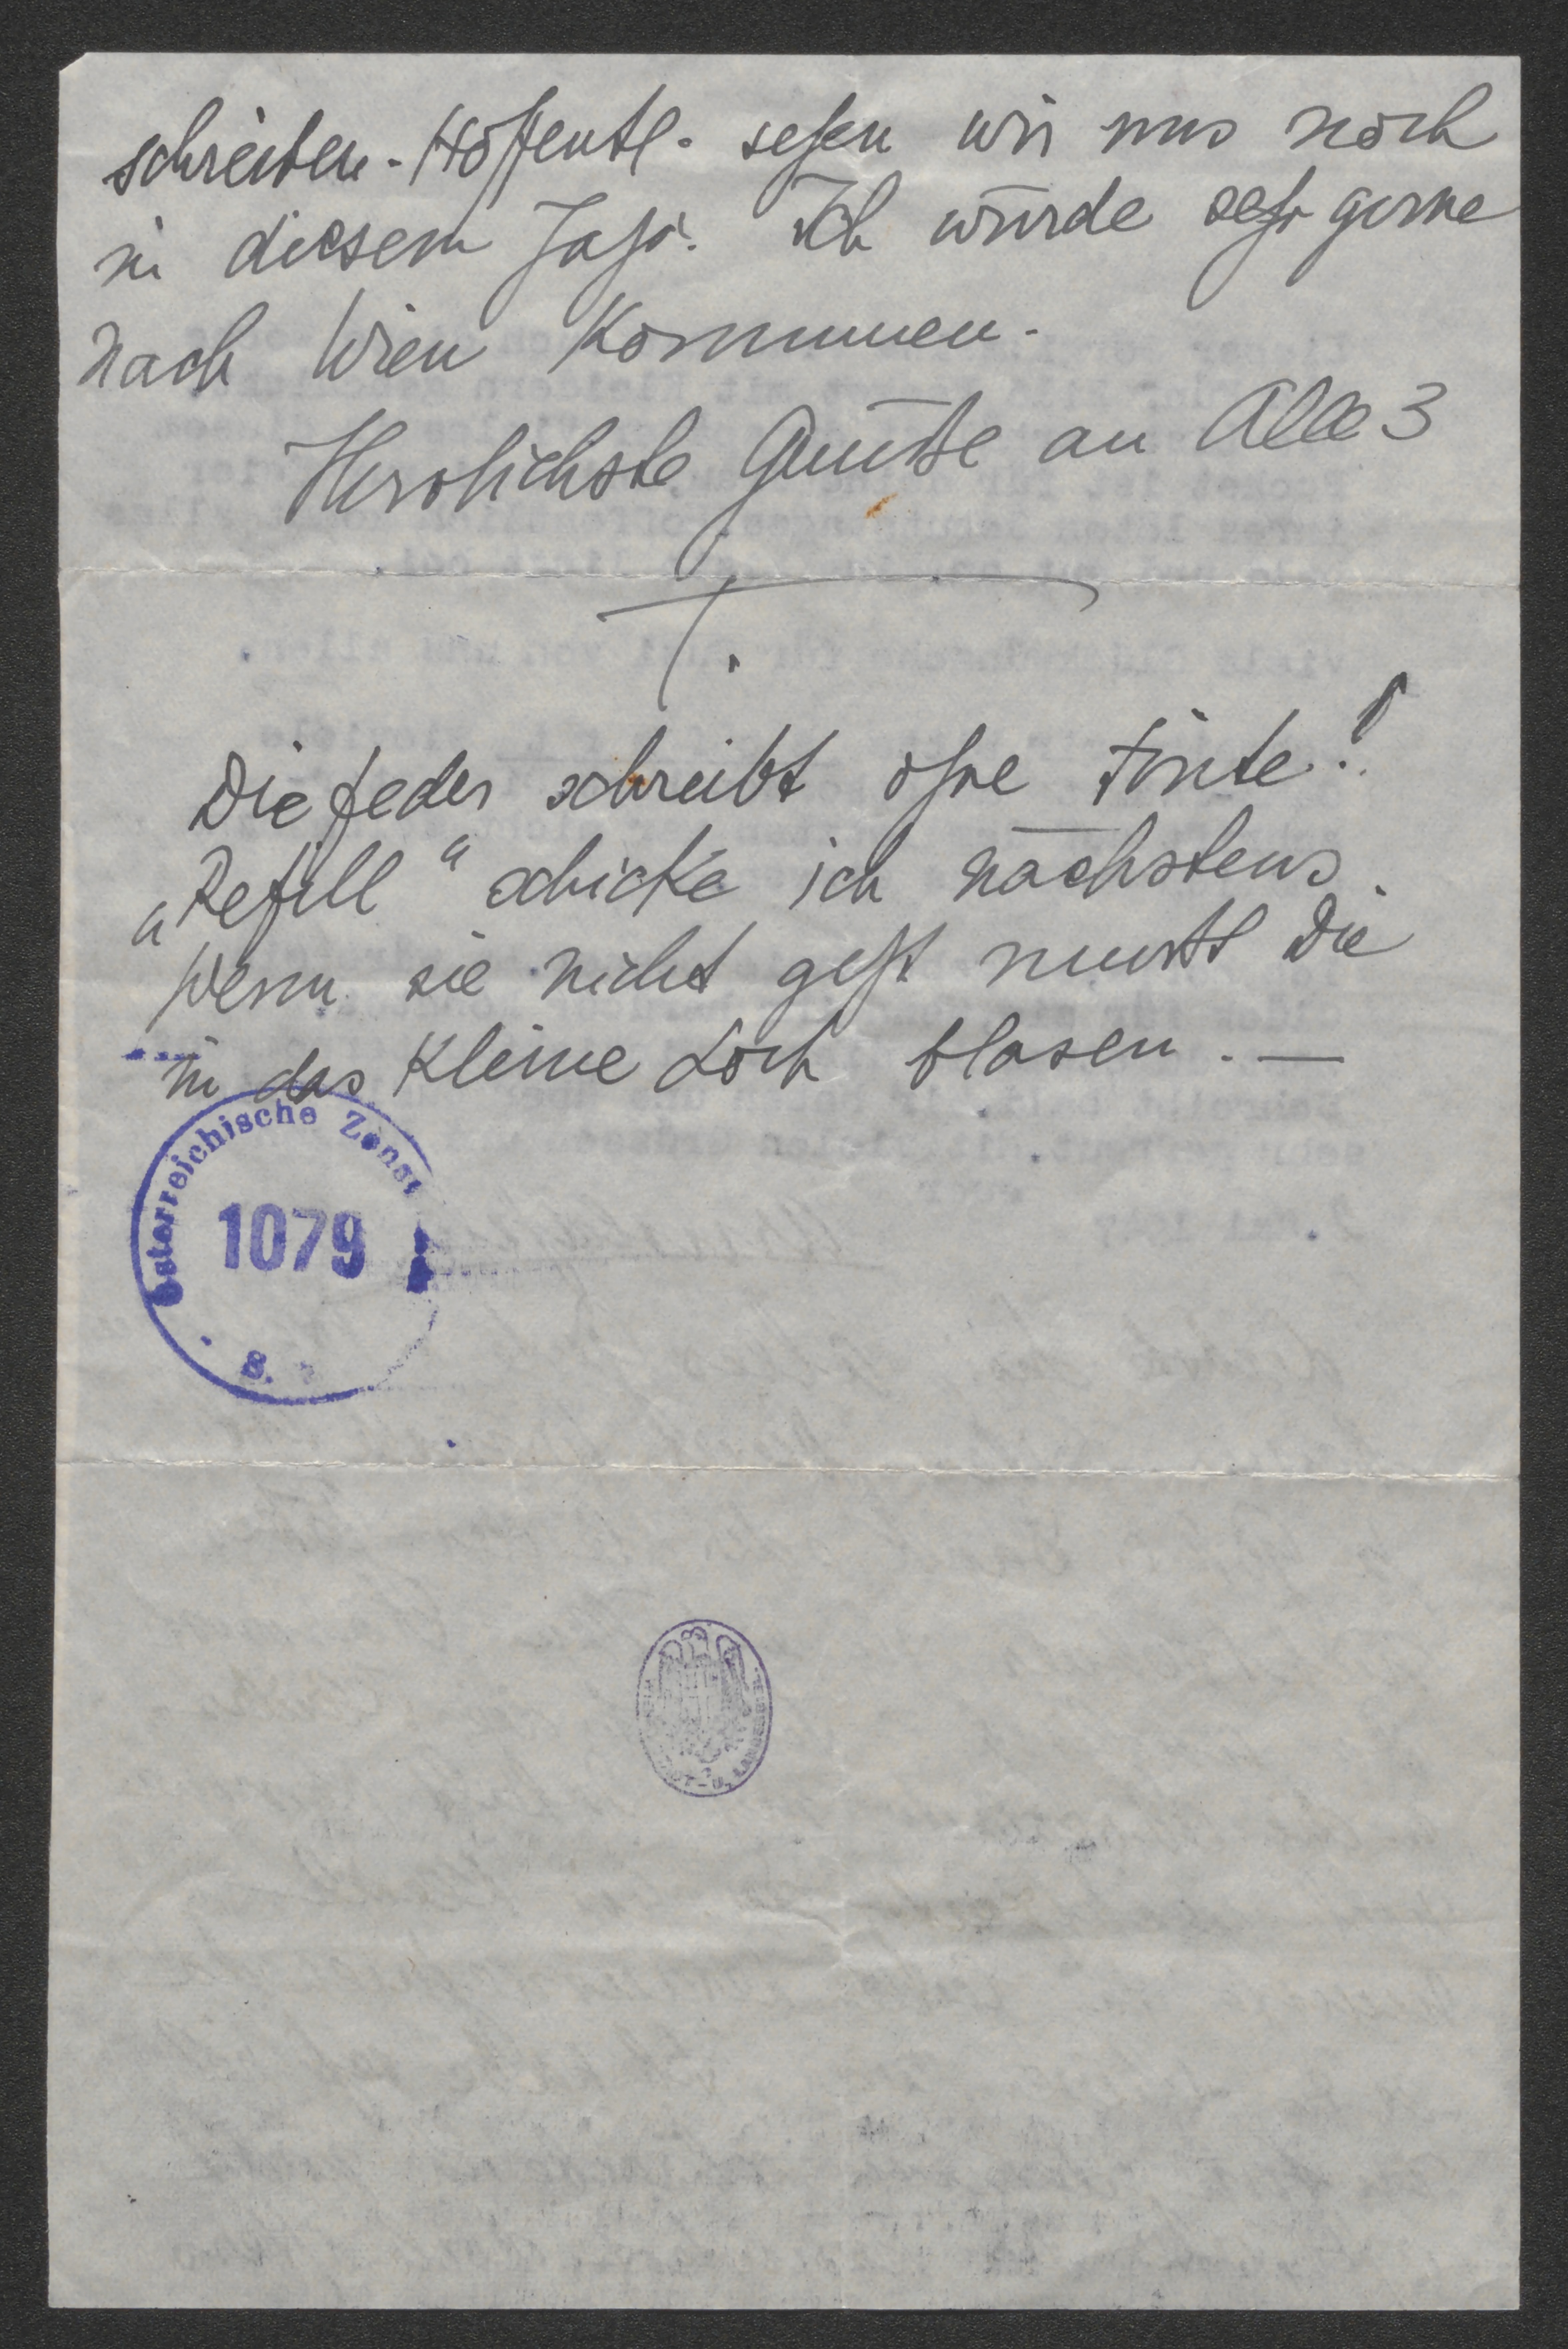 schreiben. Hoffentl. sehen wir uns noch
in diesem Jahr. Ich würde sehr gerne
nach Wien kommen.
Herzlichste Grüße an Alle 3
T.
Die Feder schreibt ohne Tinte!
„Refill“ schicke ich nächstens.
Wenn sie nicht geht mußt Du
in das kleine Loch blasen. —
Österreichische Zensur
1079
B.